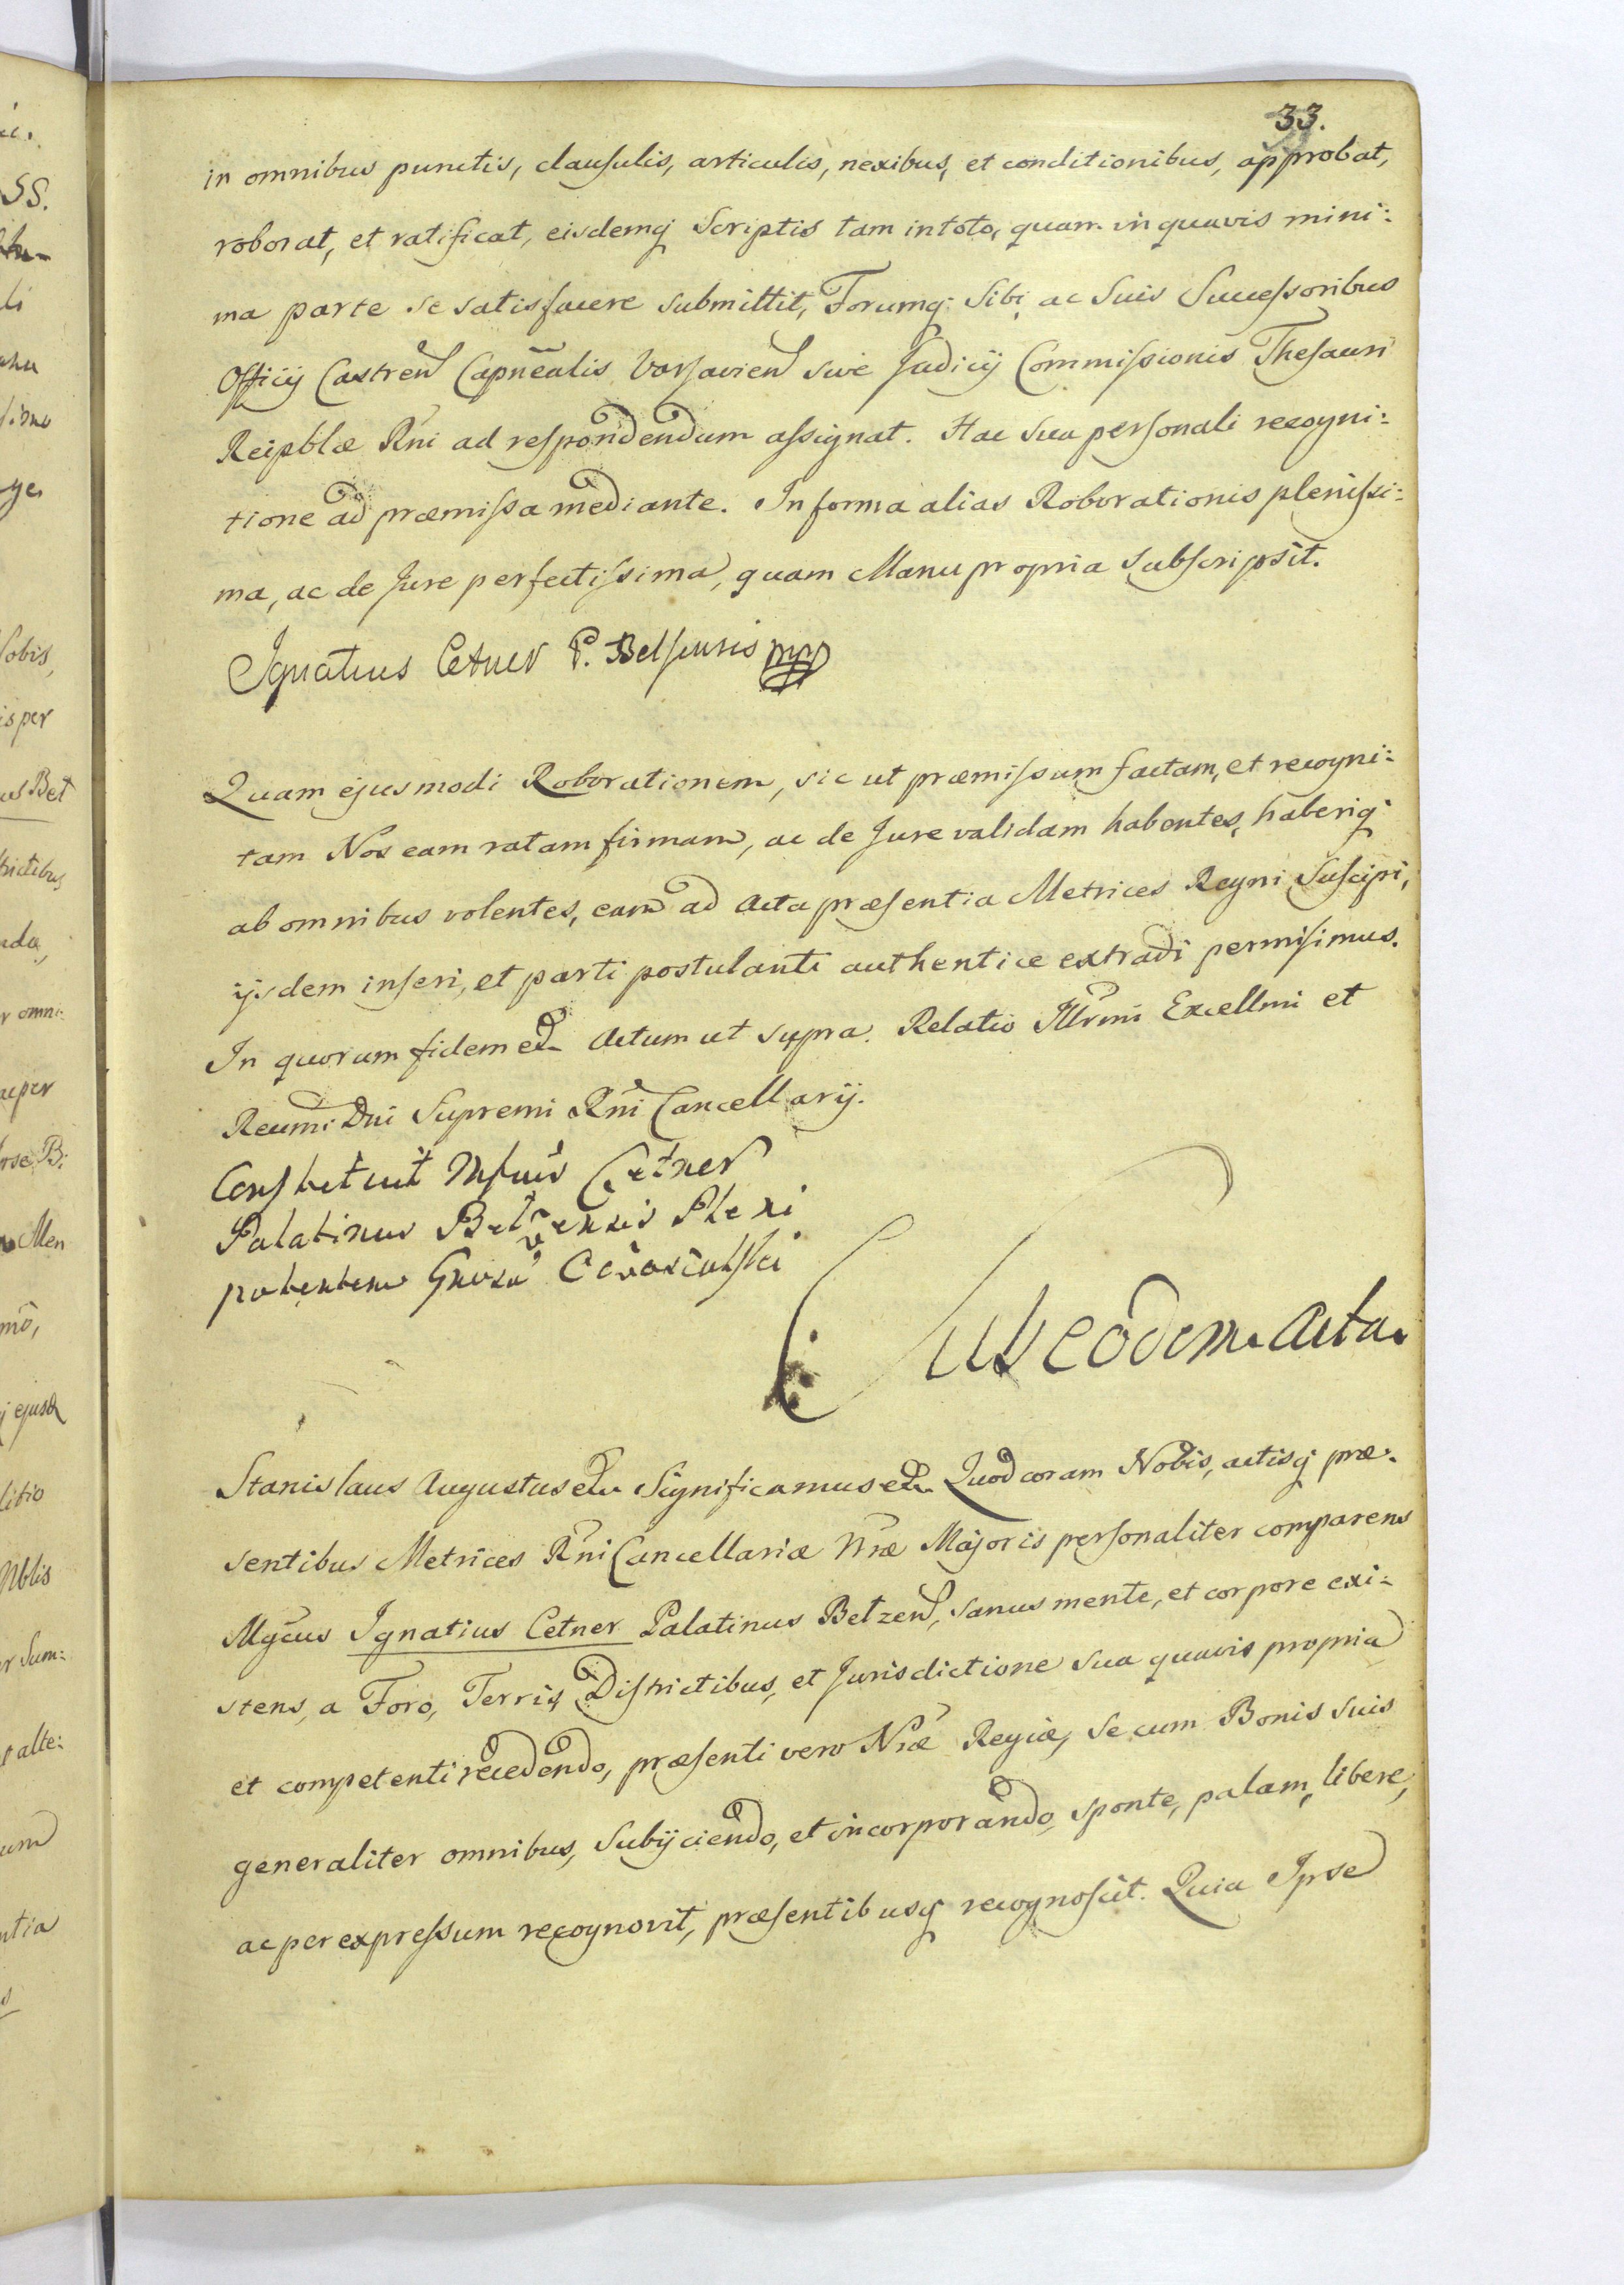 33.
in omnibus punctis, clausulis, articulis, nexibus, et conditionibus, approbat,
roborat, et ratificat, eisdemq Scriptis tam in toto, quam in quavis mini:
ma parte se satisfacere submittit, Forumq: Sibi ac Suis Successoribus
Officij Castren Capnealis Varsavien sive Judicij Commissionis Thesauri
Reipblæ Rni ad respondendum assignat. Hac sua personali recogni:
tione ad præmissa mediante. In forma alias Roborationis plenissi:
ma, ac de Jure perfectissima, quam Manu propria subscripsit.
Ignatius Cetner P. Belsensis mpp
Quam ejusmodi Roborationem, sic ut præmissum factam, et recogni:
tam Nos eam ratam firmam, ac de Jure validam habentes, haberiq
ab omnibus volentes, eam ad Acta præsentia Metrices Regni Suscipi,
ijsdem inseri, et parti postulanti authentice extradi permisimus.
In quorum fidem etc Actum ut supra. Relatio Illrmi Excellmi et
Reumi Dni Supremi Rni Cancellarij.
Constituit Cetner
Palatinus Belzensis Pleni
potentem
Sub eodem Actu
Stanislaus Augustus etc Significamus etc Quod coram Nobis, actisq præ:
sentibus Metrices Rni Cancellariæ Nræ Majoris personaliter comparens
Mgcus Ignatius Cetner Palatinus Betzen, sanus mente, et corpore exi:
stens, a Foro, Terris, Districtibus, et Jurisdictione sua quavis propria
et competenti recedendo, præsenti vero Nræ Regiæ, se cum Bonis suis
generaliter omnibus, subijciendo, et incorporando, sponte, palam, libere,
ac per expressum recognovit, præsentibusq recognoscit. Quia Ipse